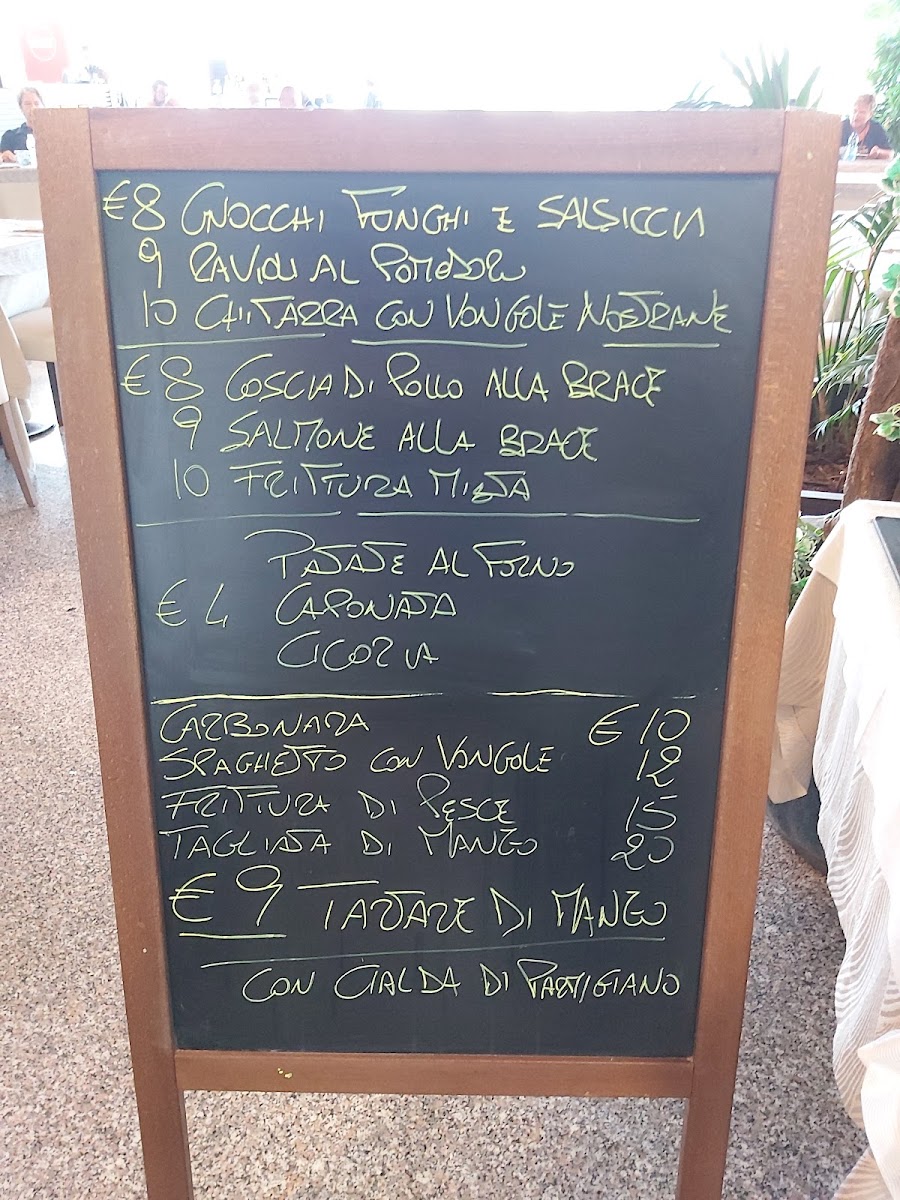 €8 GNOCCHI FUNGHI E SALSICCIA
9 RAVIOLI AL POMODORO
10 CHITARRA CON VONGOLE NOSTRANE
€8 COSCIA DI POLLO ALLA BRACE
9 SALMONE ALLA BRACE
10 FRITTURA MISTA
PATATE AL FORNO
€4 CAPONATA
CICORIA
CARBONARA €10
SPAGHETTO CON VONGOLE 12
FRITTURA DI PESCE 15
TAGLIATA DI MANZO 20
€9 TARTARE DI MANZO
CON CIALDA DI PARMIGIANO